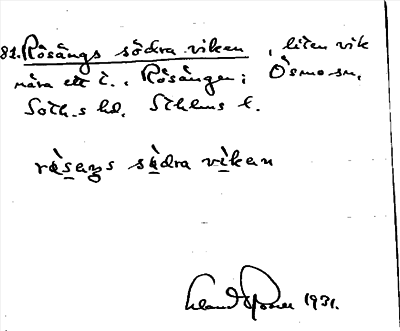 81. Rösängs södra viken, liten vik
nära ett t. . Rösängen; Ösmo sn,
Soth-s hd, Sthlms l.
ròsaŋs sòdra vikan
1931.